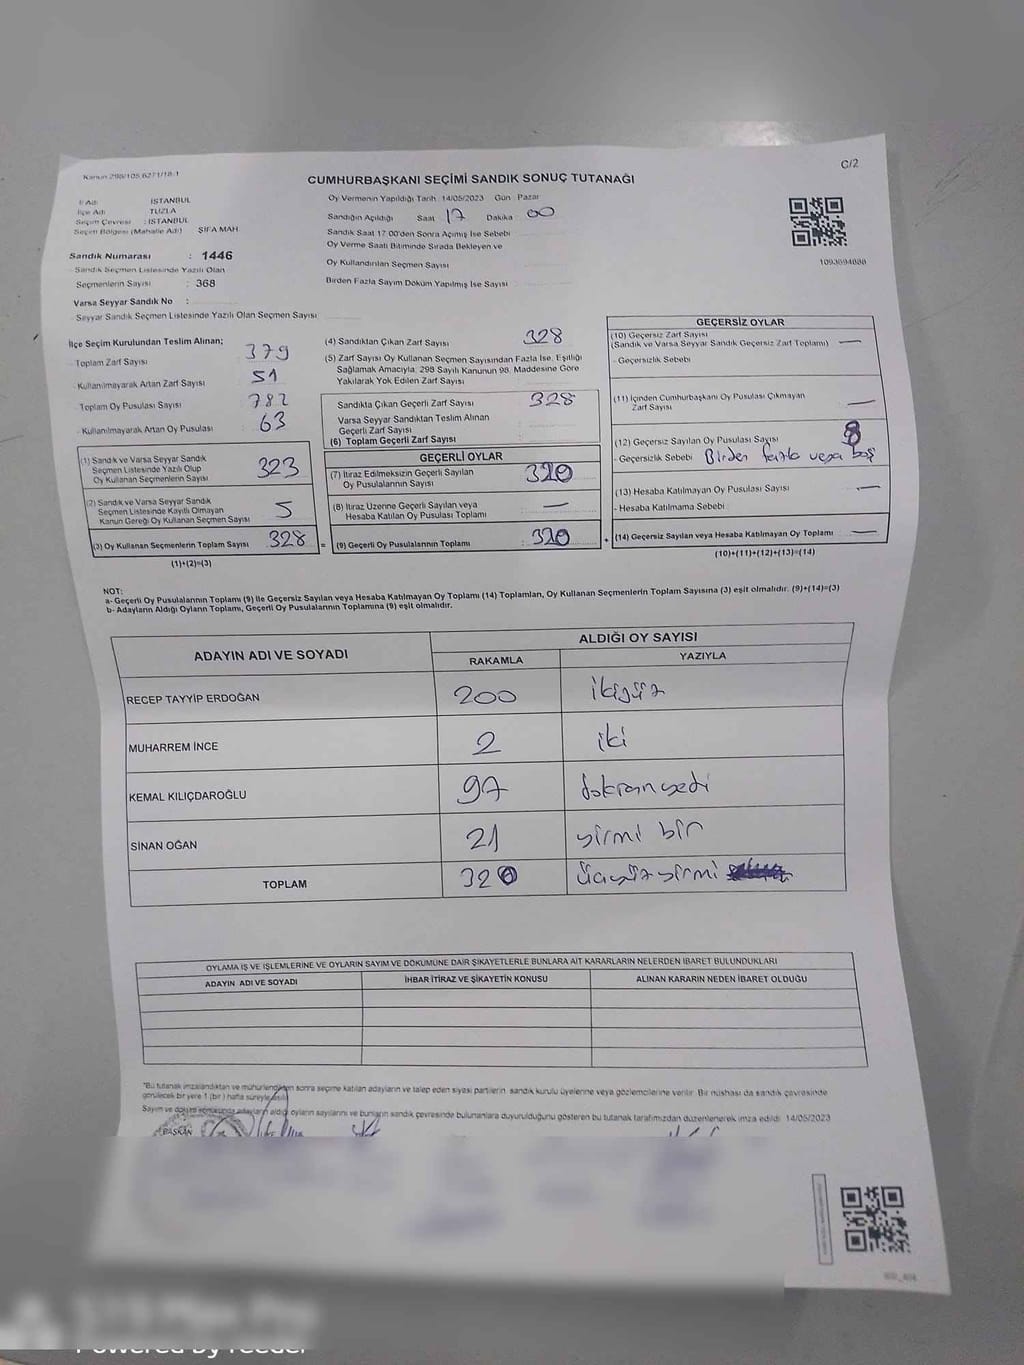 Kanun 298/105.6271/18-1
C/2
CUMHURBAŞKANI SEÇİMİ SANDIK SONUÇ TUTANAĞI
İl Adı : İSTANBUL
İlçe Adı : TUZLA
Seçim Çevresi : İSTANBUL
Seçim Bölgesi (Mahalle Adı) : ŞİFA MAH.
Sandık Numarası : 1446
Sandık Seçmen Listesinde Yazılı Olan
Seçmenlerin Sayısı : 368
Varsa Seyyar Sandık No :
Seyyar Sandık Seçmen Listesinde Yazılı Olan Seçmen Sayısı
Oy Vermenin Yapıldığı Tarih 14/05/2023 Gün Pazar
Sandığın Açıldığı Saat 17 Dakika 00
Sandık Saat 17.00'den Sonra Açımış İse Sebebi
Oy Verme Saati Bitiminde Sırada Bekleyen ve
Oy Kullandırılan Seçmen Sayısı
Birden Fazla Sayım Döküm Yapılmış İse Sayısı
1093694888
İlçe Seçim Kurulundan Teslim Alınan;
Toplam Zarf Sayısı : 379
Kullanılmayarak Artan Zarf Sayısı : 51
Toplam Oy Pusulası Sayısı : 782
Kullanılmayarak Artan Oy Pusulası : 63
(1) Sandık ve Varsa Seyyar Sandık
Seçmen Listesinde Yazılı Olup
Oy Kullanan Seçmenlerin Sayısı 323
(2) Sandık ve Varsa Seyyar Sandık
Seçmen Listesinde Kayıtlı Olmayan
Kanun Gereği Oy Kullanan Seçmen Sayısı 5
(3) Oy Kullanan Seçmenlerin Toplam Sayısı 328
(1)+(2)=(3)
(4) Sandıktan Çıkan Zarf Sayısı 328
(5) Zarf Sayısı Oy Kullanan Seçmen Sayısından Fazla İse, Eşitliği
Sağlamak Amacıyla, 298 Sayılı Kanunun 98. Maddesine Göre
Yakılarak Yok Edilen Zarf Sayısı
Sandıkta Çıkan Geçerli Zarf Sayısı 328
Varsa Seyyar Sandıktan Teslim Alınan
Geçerli Zarf Sayısı
(6) Toplam Geçerli Zarf Sayısı
GEÇERLİ OYLAR
(7) İtiraz Edilmeksizin Geçerli Sayılan
Oy Pusulalarının Sayısı 320
(8) İtiraz Üzerine Geçerli Sayılan veya
Hesaba Katılan Oy Pusulası Toplamı —
= (9) Geçerli Oy Pusulalarının Toplamı : 320
GEÇERSİZ OYLAR
(10) Geçersiz Zarf Sayısı
(Sandık ve Varsa Seyyar Sandık Geçersiz Zarf Toplamı) —
- Geçersizlik Sebebi
(11) İçinden Cumhurbaşkanı Oy Pusulası Çıkmayan
Zarf Sayısı —
(12) Geçersiz Sayılan Oy Pusulası Sayısı 8
- Geçersizlik Sebebi Birden fazla veya boş
(13) Hesaba Katılmayan Oy Pusulası Sayısı —
- Hesaba Katılmama Sebebi
+ (14) Geçersiz Sayılan veya Hesaba Katılmayan Oy Toplamı —
(10)+(11)+(12)+(13)=(14)
NOT:
a- Geçerli Oy Pusulalarının Toplamı (9) ile Geçersiz Sayılan veya Hesaba Katılmayan Oy Toplamı (14) Toplamları, Oy Kullanan Seçmenlerin Toplam Sayısına (3) eşit olmalıdır. (9)+(14)=(3)
b- Adayların Aldığı Oyların Toplamı, Geçerli Oy Pusulalarının Toplamına (9) eşit olmalıdır.
ADAYIN ADI VE SOYADI
ALDIĞI OY SAYISI
RAKAMLA YAZIYLA
RECEP TAYYİP ERDOĞAN 200 ikiyüz
MUHARREM İNCE 2 iki
KEMAL KILIÇDAROĞLU 97 doksanyedi
SİNAN OĞAN 21 yirmi bir
TOPLAM 320 üçyüzyirmi
OYLAMA İŞ VE İŞLEMLERİNE VE OYLARIN SAYIM VE DÖKÜMÜNE DAİR ŞİKAYETLERLE BUNLARA AİT KARARLARIN NELERDEN İBARET BULUNDUKLARI
ADAYIN ADI VE SOYADI İHBAR İTİRAZ VE ŞİKAYETİN KONUSU ALINAN KARARIN NEDEN İBARET OLDUĞU
"Bu tutanak imzalandıktan ve mühürlendikten sonra seçime katılan adayların ve talep eden siyasi partilerin sandık kurulu üyelerine veya gözlemcilerine verilir. Bir nüshası da sandık çevresinde
görülecek bir yere 1 (bir) hafta süreyle asılır
Sayım ve döküm sonucunda adayların aldığı oyların sayılarını ve bunların sandık çevresinde bulunanlara duyurulduğunu gösteren bu tutanak tarafımızdan düzenlenerek imza edildi. 14/05/2023
BAŞKAN
Powered by reeder